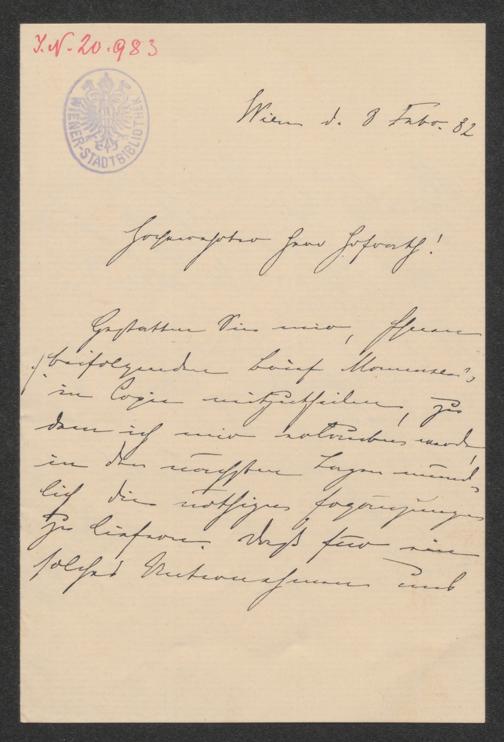 I.N. 20.983
WIENER-STADTBIBLIOTHEK
Wien d. 8 Febr. 82
Hochverehrter Herr Hofrath!
Gestatten Sie mir, Ihnen
beifolgenden Brief Mommsen's
in Copie mitzutheilen, zu
dem ich mir erlauben werde,
in den nächsten Tagen münd-
lich die nöthigen Ergänzungen
zu liefern. Daß für ein
solches Unternehmen uns